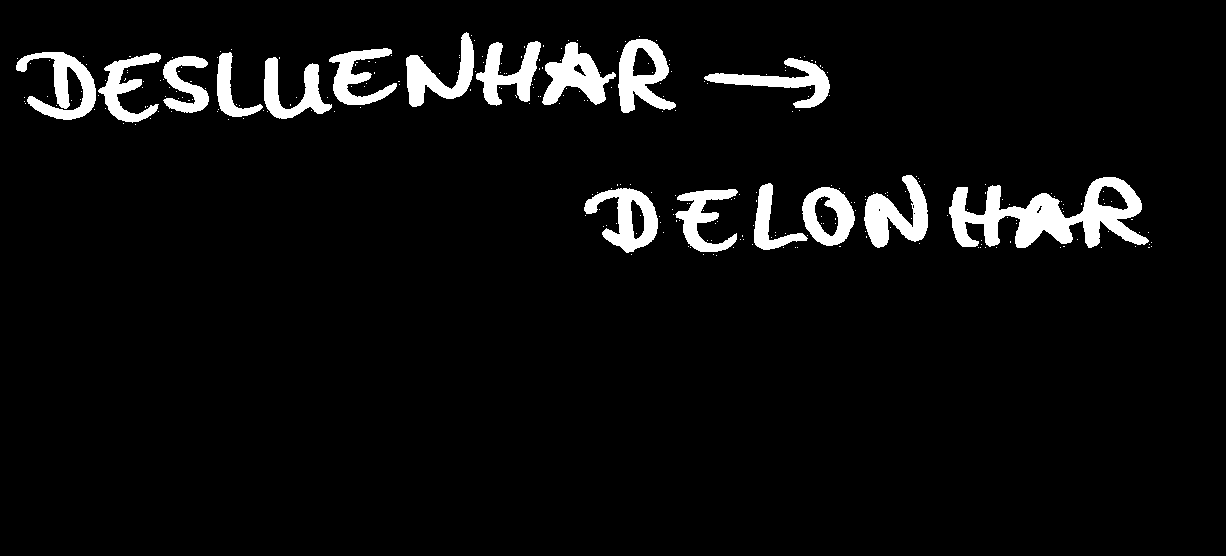 DESLUENHAR →
DELONHAR